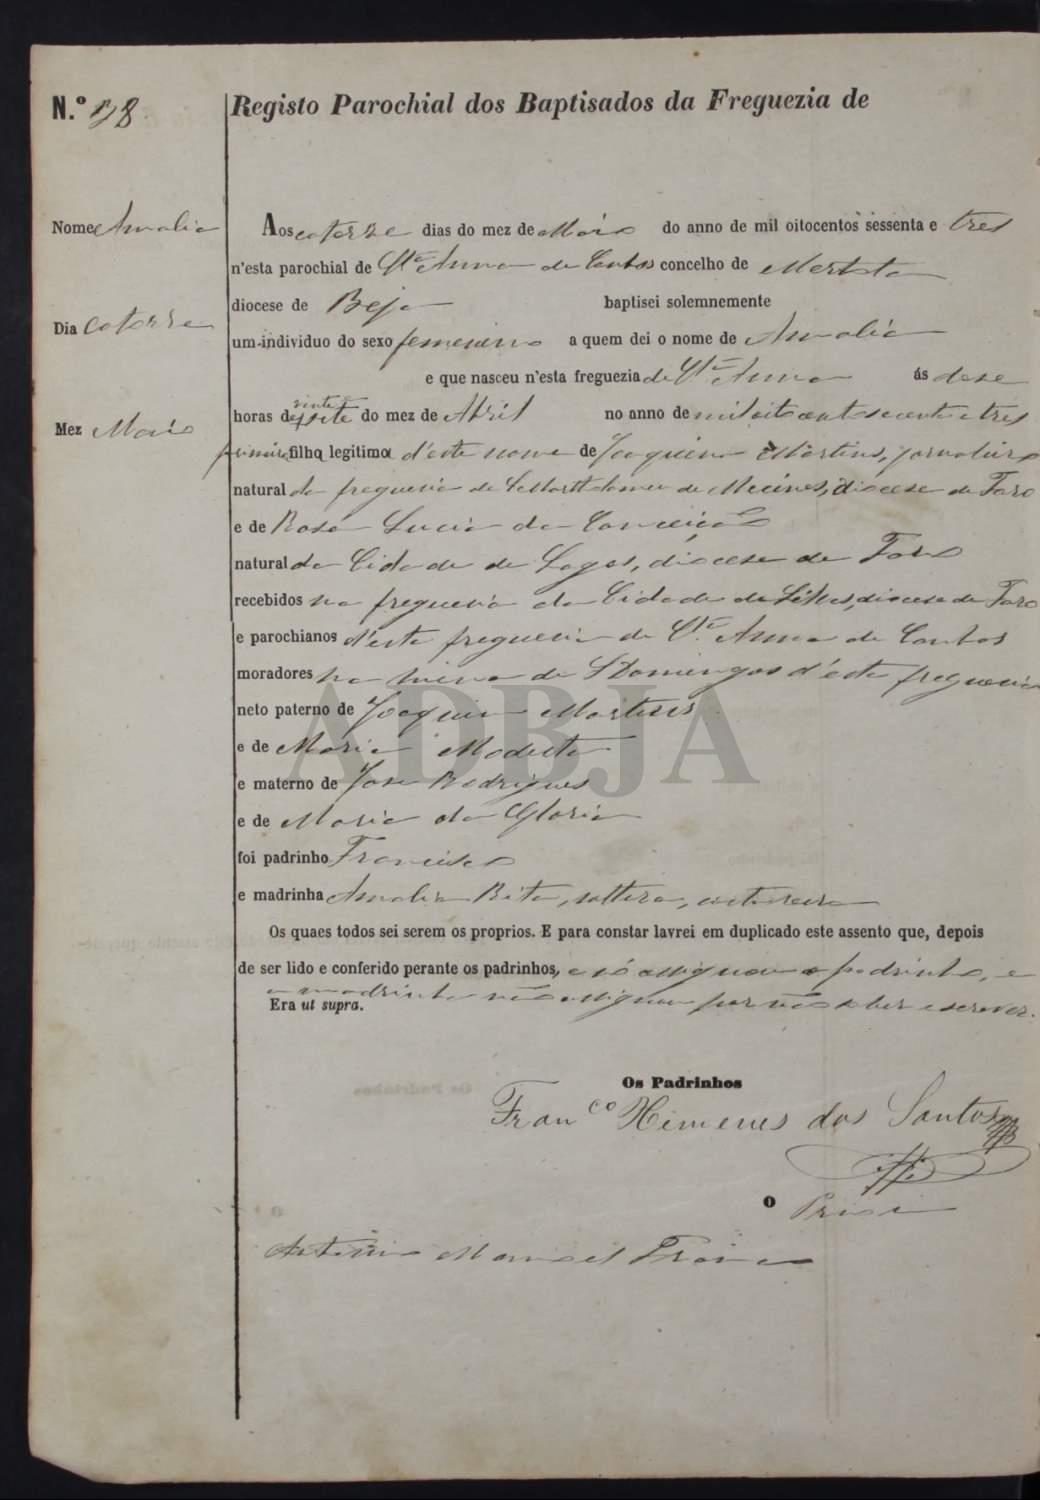 N.º 38
Registo Parochial dos Baptisados da Freguezia de
Nome Amalia
Dia catorze
Mez Maio
Aos catorze dias do mez de Maio do anno de mil oitocentos sessenta e tres
n'esta parochial de Stª Anna de Cambas concelho de Mertola
diocese de Beja baptisei solemnemente
um individuo do sexo femenino a quem dei o nome de Amalia
e que nasceu n'esta freguezia de Stª Anna ás doze
horas de vinte e sete do mez de Abril no anno de mil oito centos secenta e tres
primeira filha legitima d'este nome de Joaquim Martins, jornaleiro
natural da freguezia de S. Barttolomeu de Mecines, diocese de Faro
e de Rosa Lucia da Conceição
natural da Cidade de Lagos, diocese de Faro
recebidos na freguezia da Cidade de Silves, diocese de Faro
e parochianos d'esta freguezia de Stª Anna de Cambas
moradores na mina de S Domingos d'esta freguezia
neto paterno de Joaquim Martins
e de Maria Modesta
e materno de Jose Rodrigues
e de Maria da Gloria
foi padrinho Francisco
e madrinha Amalia Rita, solteira, costureira
Os quaes todos sei serem os proprios. E para constar lavrei em duplicado este assento que, depois
de ser lido e conferido perante os padrinhos, e só assignou o padrinho, e
a madrinha não assignou por não saber escrever.
Era ut supra.
ADBJA
Os Padrinhos
Fran.co Ximenes dos Santos
O Prior
Antonio Manoel